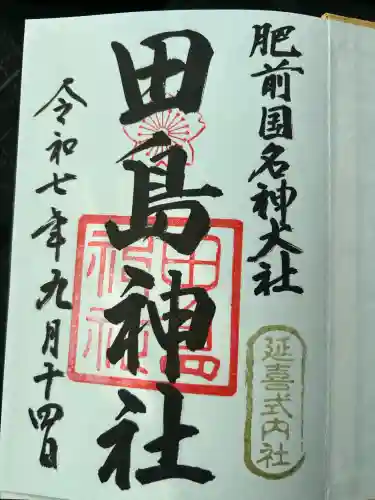 肥前国名神大社
延喜式内社
田島神社
田島神社
令和七年九月十四日